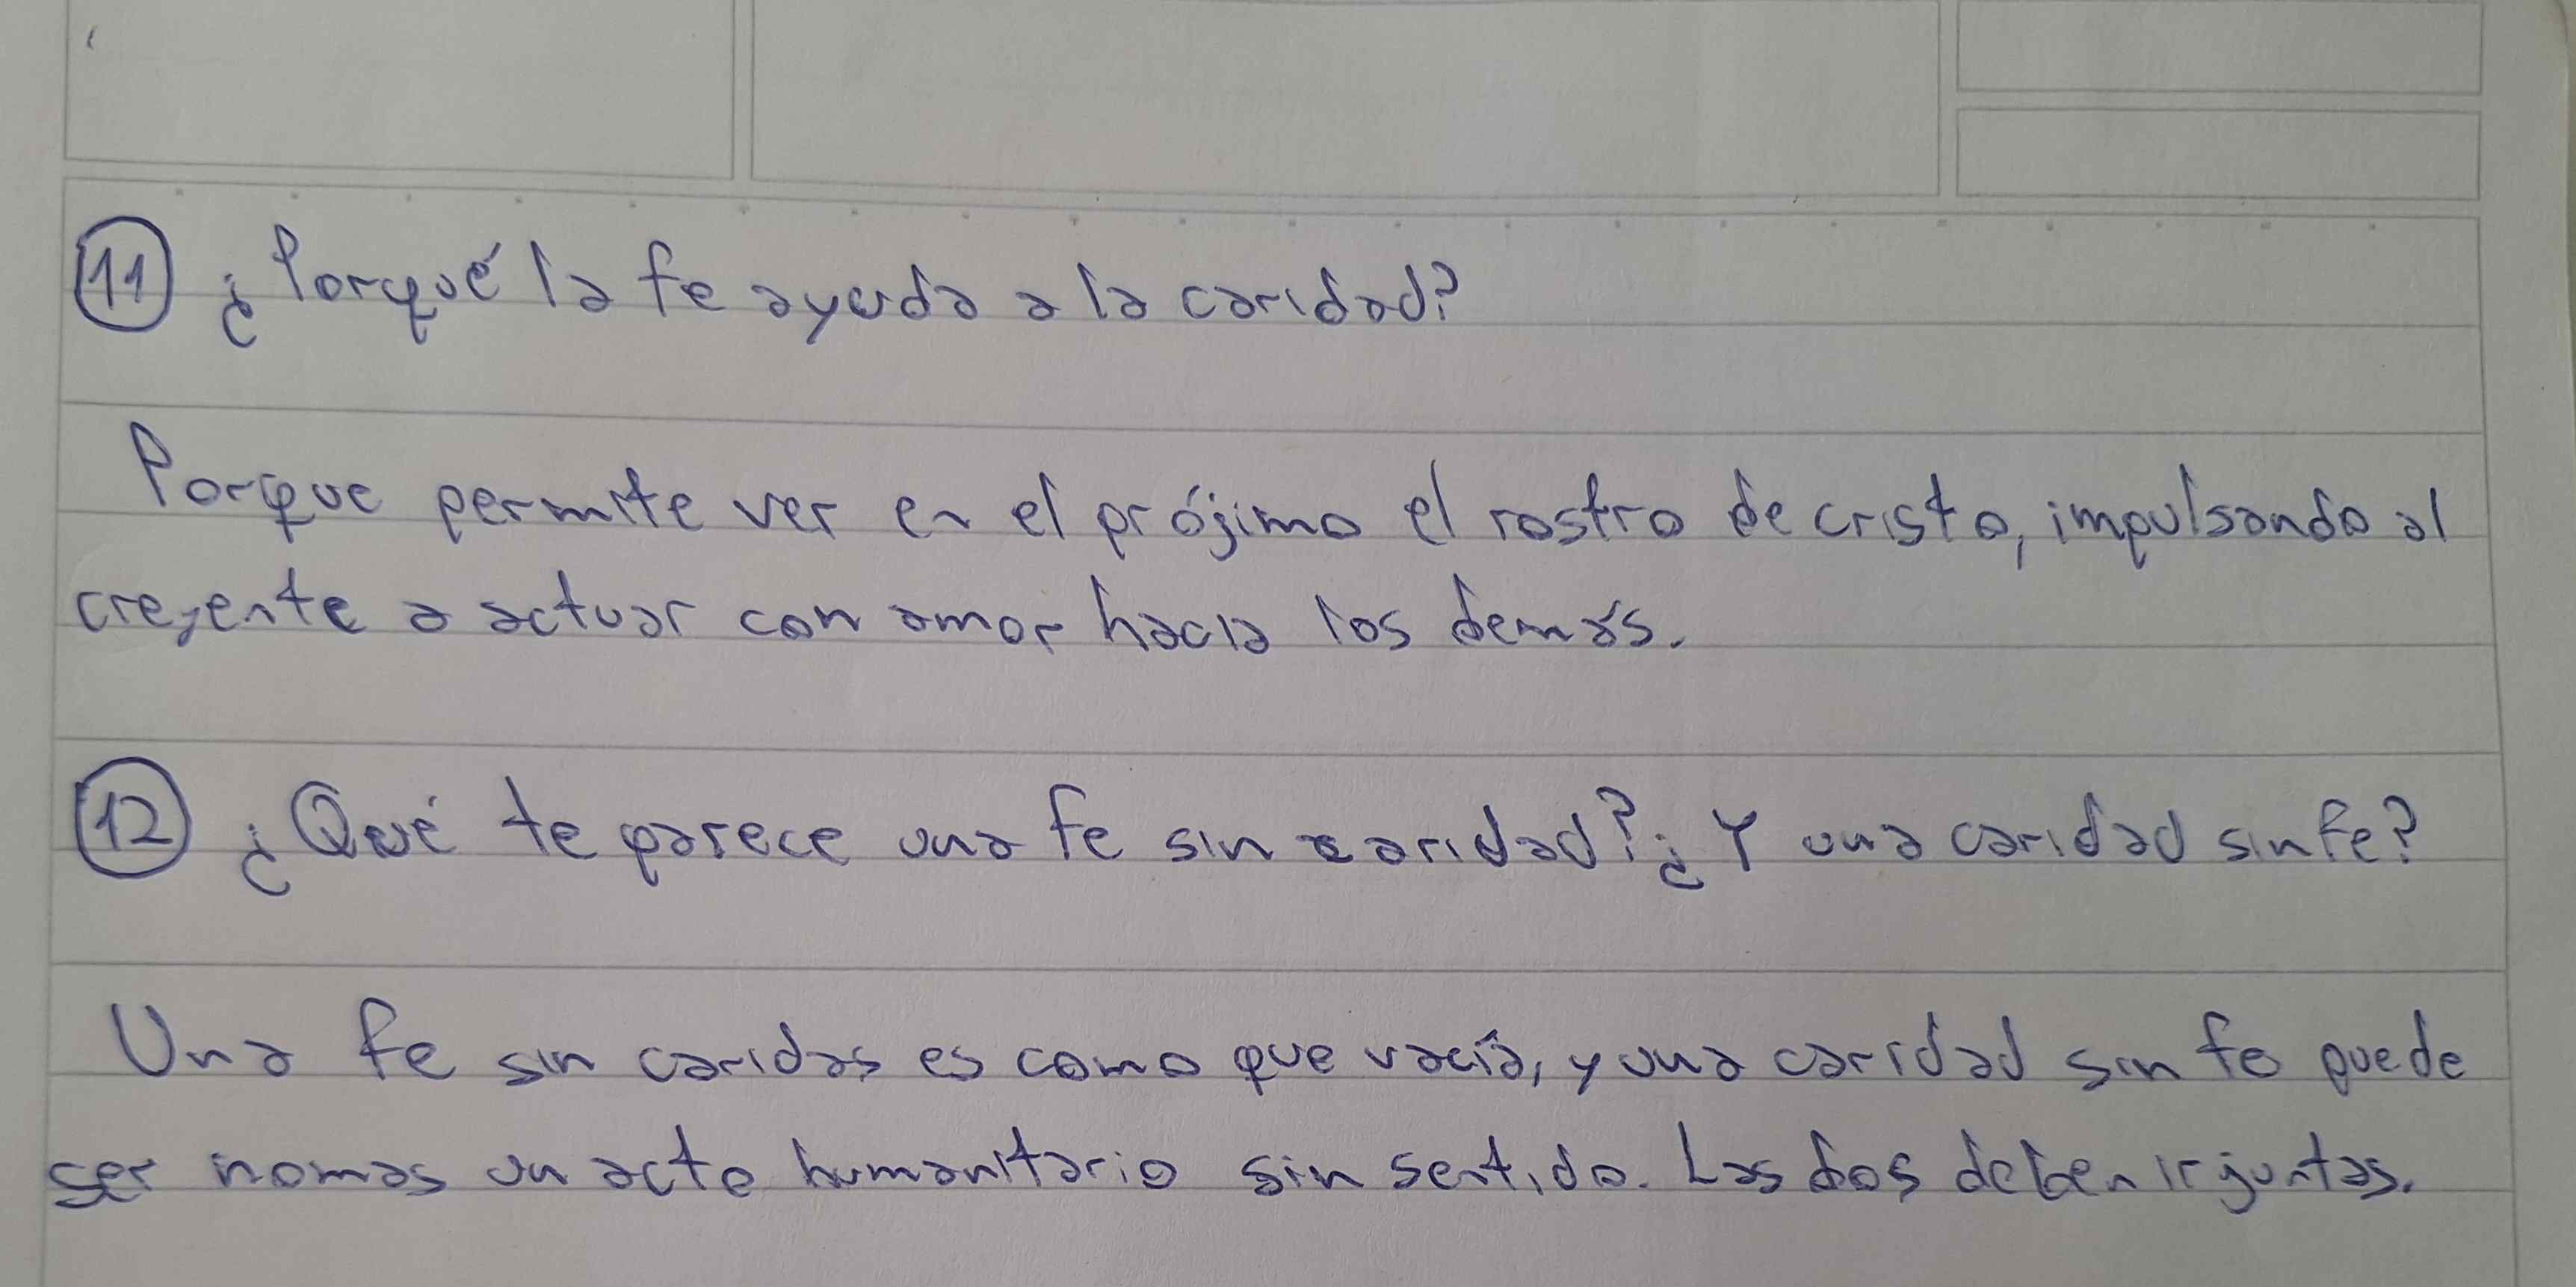 11 ¿Porqué la fe ayuda a la caridad?
Porque permite ver en el prójimo el rostro de cristo, impulsando al
creyente a actuar con amor hacia los demás.
12 ¿Qué te parece una fe sin caridad? ¿Y una caridad sin fe?
Una fe sin caridas es como que vacía, y una caridad sin fe puede
ser nomas un acto humanitario sin sentido. Las dos deben ir juntas.